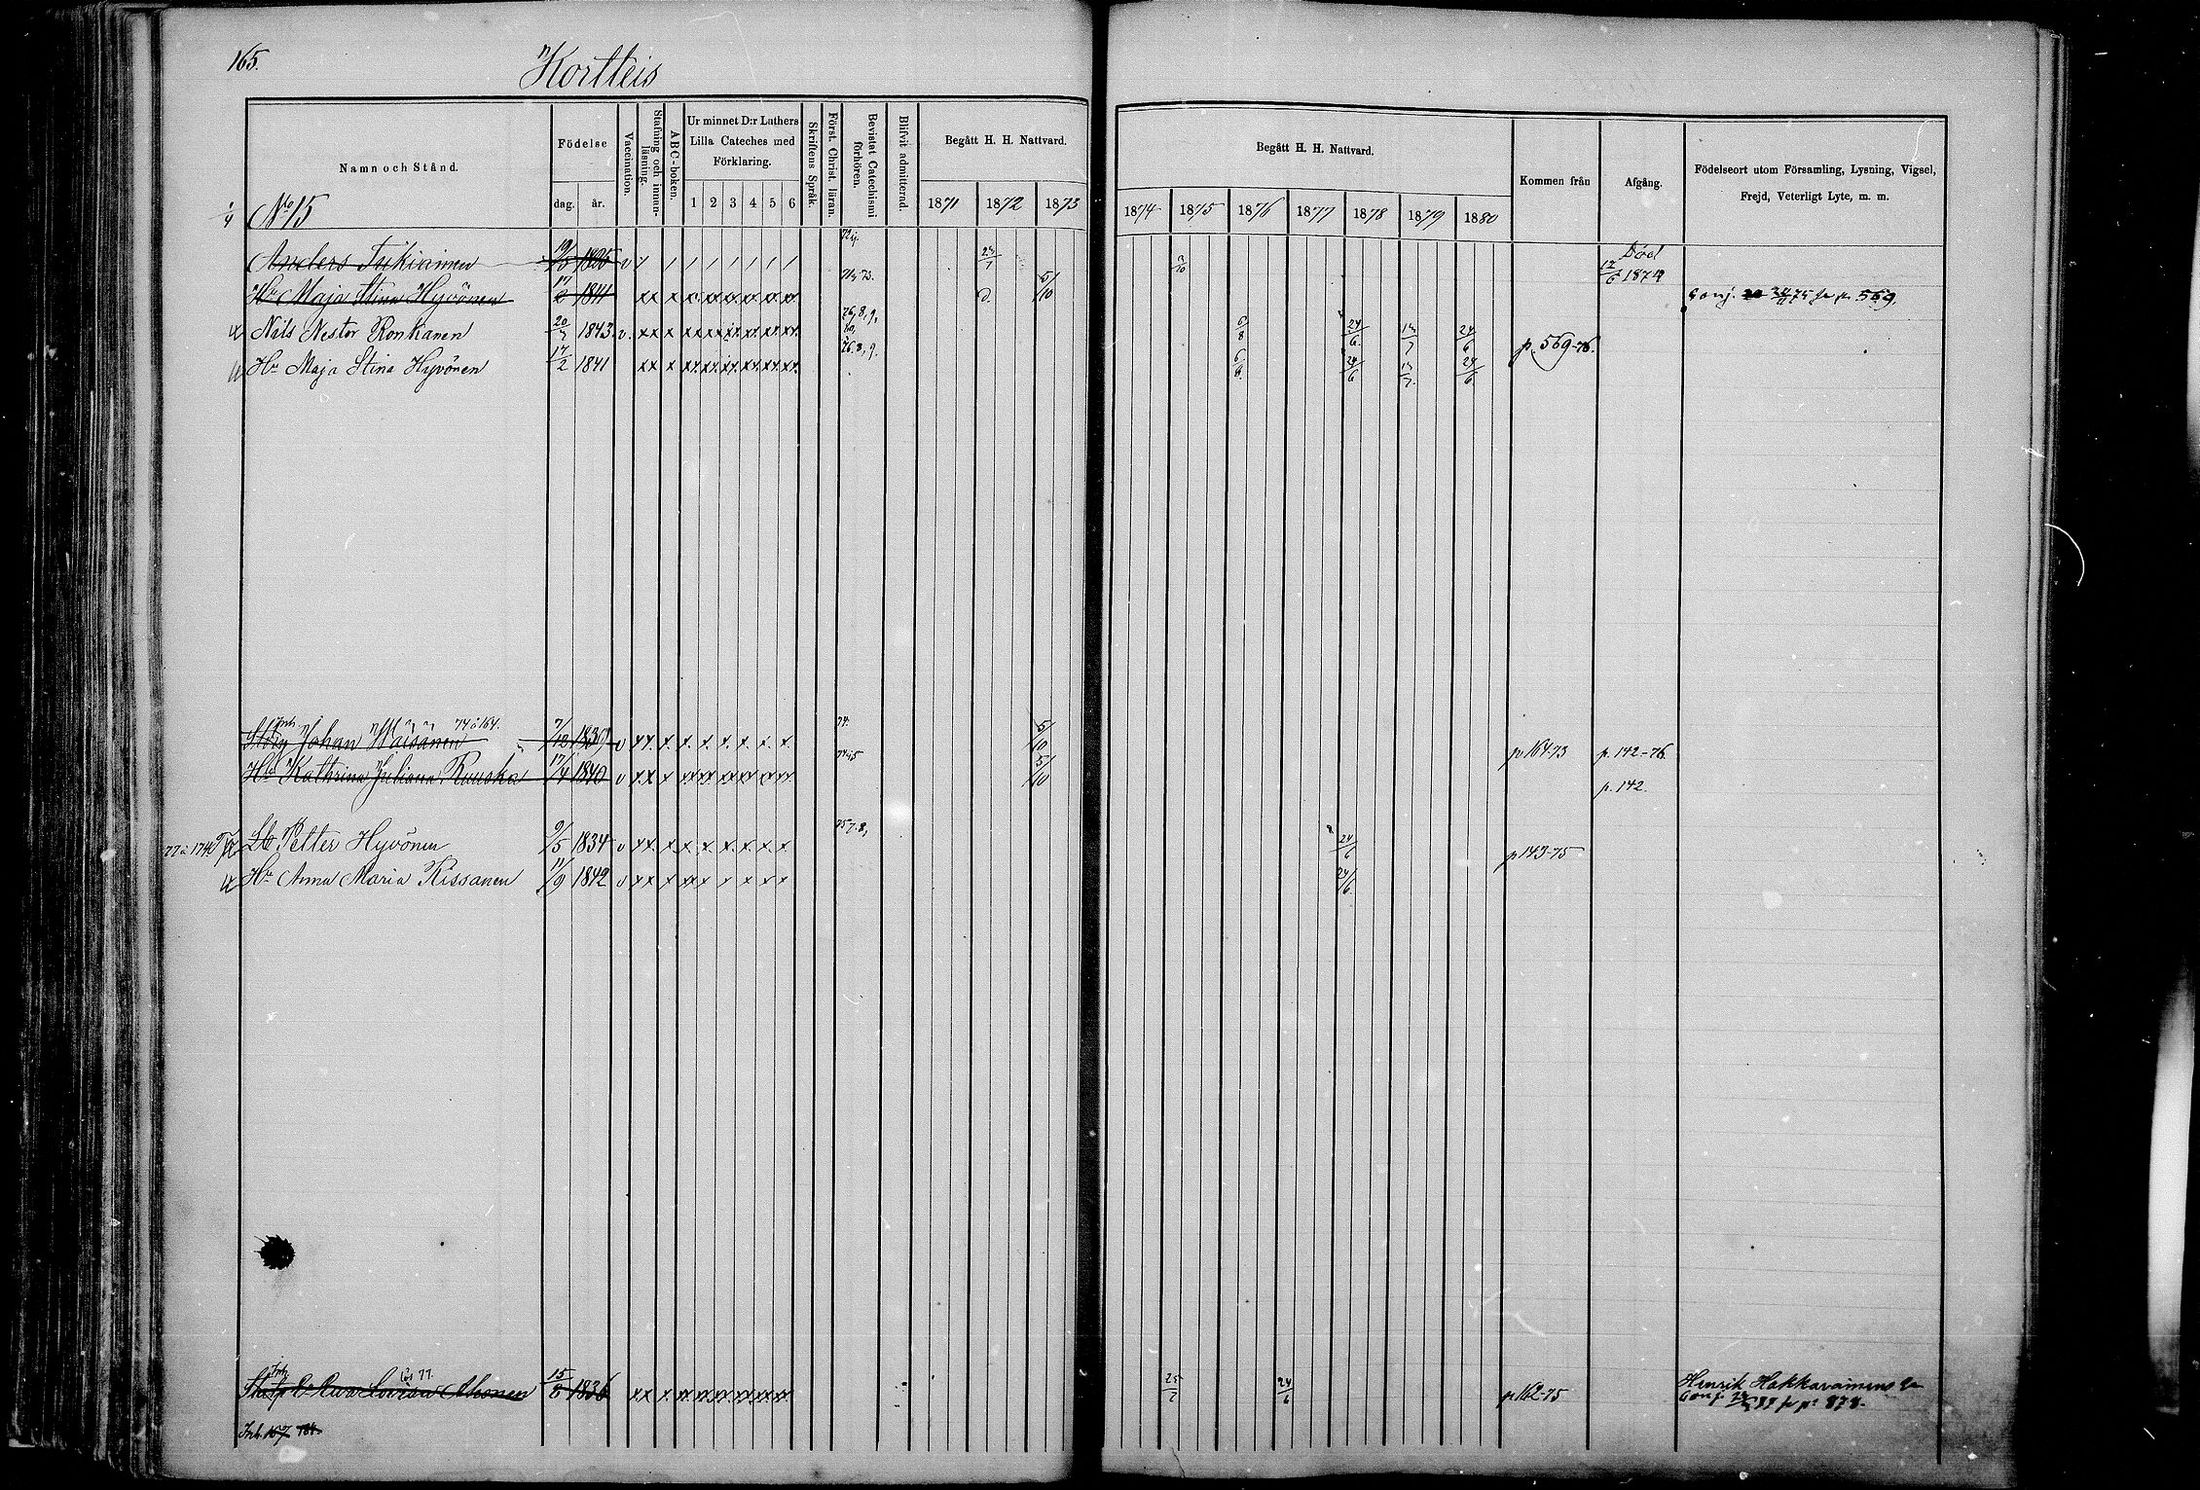 165.
Kortteis
Namn och Stånd.
Födelse
dag. år.
Vaccination.
Stafning och innanläsning.
ABC-boken.
Ur minnet D:r Luthers Lilla Cateches med Förklaring.
1 2 3 4 5 6
Skriftens Språk.
Först. Christ. läran.
Bevistat Catechismi förhören.
Blifvit admitterad.
Begått H. H. Nattvard.
1871 1872 1873
Begått H. H. Nattvard.
1874 1875 1876 1877 1878 1879 1880
Kommen från
Afgång.
Födelseort utom Församling, Lysning, Vigsel, Frejd, Veterligt Lyte, m. m.
1/4 No 15
Anders Tukiainen 1825 v 23/1 Död 1874
Hu Maja Stina Hyvönen 17/2 1841 xx x 71, 73. d. 5/10 Conj. 75 p. 569.
Nils Nestor Ronkanen 20/7 1843. v. xx x 76, 8, 9, 80, 6/8 24/6 13/7 24/6 p. 569-76.
Hu Maja Stina Hyvönen 17/2 1841 xx x 76. 8, 9. 6/8 24/6 13/7 24/6
Johan Väisänen 74 o 164. 7/12 1839 v xx x x x x x x x 74. 5/10 p 164-73 p. 142-76.
Hu Kathrina Juliana Ruuska 17/4 1840 v xx x 5/10 p. 142.
Petter Hyvönen 9/5 1834 v xx x x x x x x x 75 7. 8, 24/6 p 143-75
Hu Anna Maria Kissanen 11/9 1842 v xx x 24/6
Lovisa Ahonen 15/ 1836 xx x 24/6 p 162-75 Henrik
Inh. 167